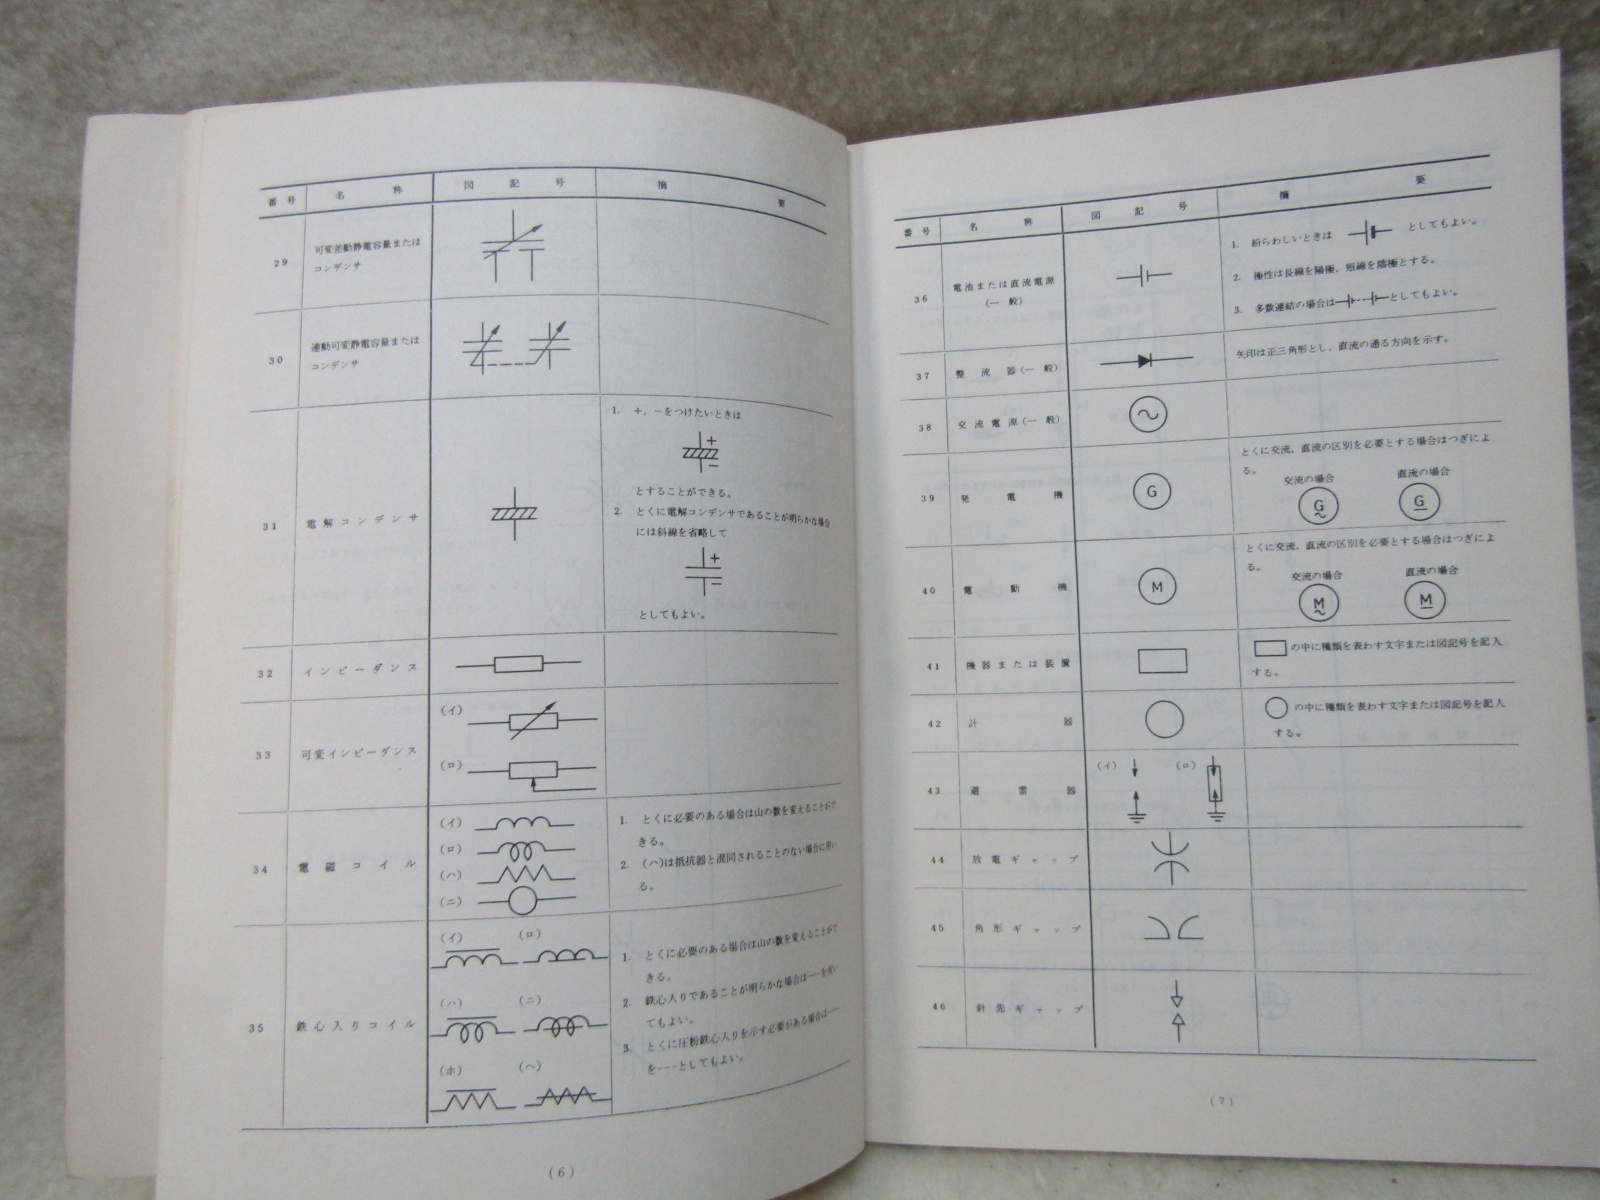 番号 名称 図記号 摘要
29 可変差動静電容量または
コンデンサ
30 連動可変静電容量または
コンデンサ
31 電解コンデンサ
1. +, −をつけたいときは
+
−
とすることができる。
2. とくに電解コンデンサであることが明らかな場合
には斜線を省略して
+
−
としてもよい。
32 インピーダンス
33 可変インピーダンス
(イ)
(ロ)
34 電磁コイル
(イ)
(ロ)
(ハ)
(ニ)
1. とくに必要のある場合は山の数を変えることがで
きる。
2. (ハ)は抵抗器と混同されることのない場合に用い
る。
35 鉄心入りコイル
(イ) (ロ)
(ハ) (ニ)
(ホ) (ヘ)
1. とくに必要のある場合は山の数を変えることがで
きる。
2. 鉄心入りであることが明らかな場合は—を省い
てもよい。
3. とくに圧粉鉄心入りを示す必要がある場合は—
を---としてもよい。
(6)
番号 名称 図記号 摘要
36 電池または直流電源
(一般)
1. 紛らわしいときは としてもよい。
2. 極性は長線を陽極、短線を陰極とする。
3. 多数連結の場合は としてもよい。
37 整流器(一般)
矢印は正三角形とし、直流の通る方向を示す。
38 交流電源(一般)
39 発電機
G
とくに交流、直流の区別を必要とする場合はつぎによ
る。
交流の場合 直流の場合
G G
40 電動機
M
とくに交流、直流の区別を必要とする場合はつぎによ
る。
交流の場合 直流の場合
M M
41 機器または装置
の中に種類を表わす文字または図記号を記入
する。
42 計器
の中に種類を表わす文字または図記号を記入
する。
43 避雷器
(イ) (ロ)
44 放電ギャップ
45 角形ギャップ
46 針先ギャップ
(7)